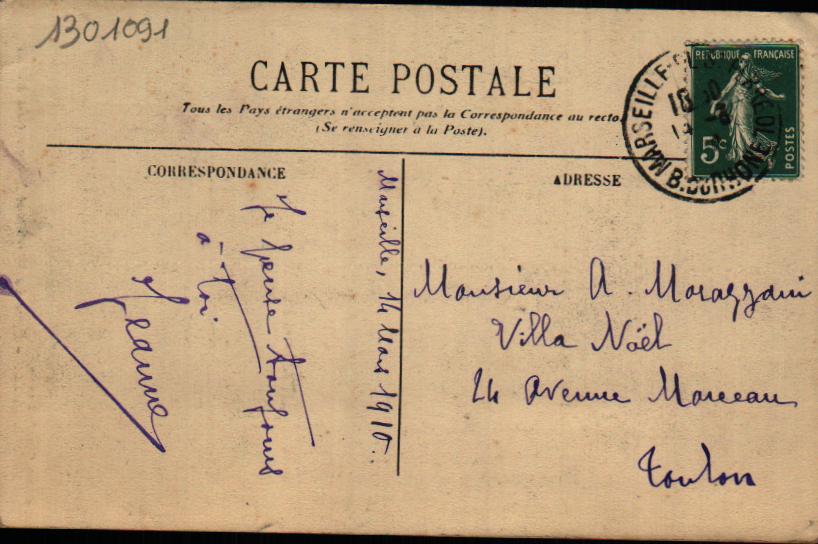 1301091
CARTE POSTALE
Tous les Pays étrangers n'acceptent pas la Correspondance au recto.
(Se renseigner à la Poste).
CORRESPONDANCE
ADRESSE
RÉPUBLIQUE FRANÇAISE
5c
POSTES
MARSEILLE
B. DU RHONE
Marseille, 14 Mars 1910.
Je pense toujours
à toi
Jeanne
Monsieur A. Morazzani
Villa Noël
24 Avenue Marceau
Toulon